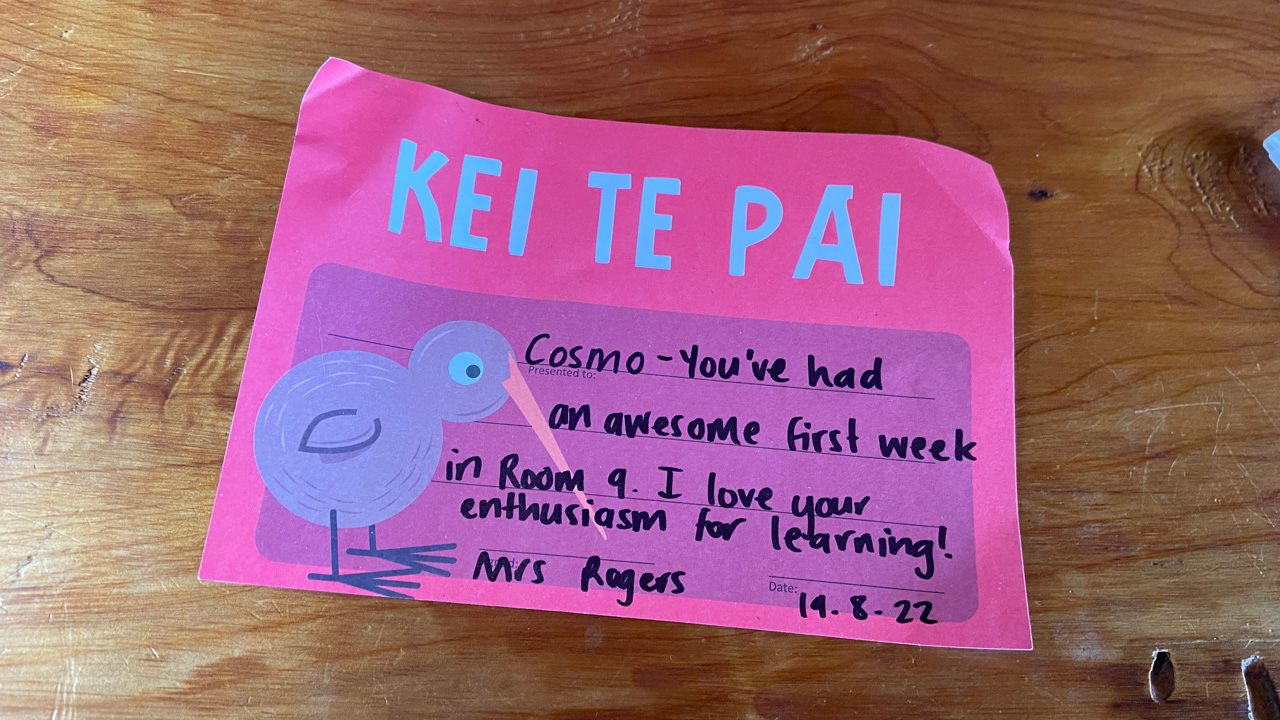 KEI TE PAI
Cosmo - You've had
Presented to:
an awesome first week
in Room 9. I love your
enthusiasm for learning!
Mrs Rogers
Date:
19.8.22